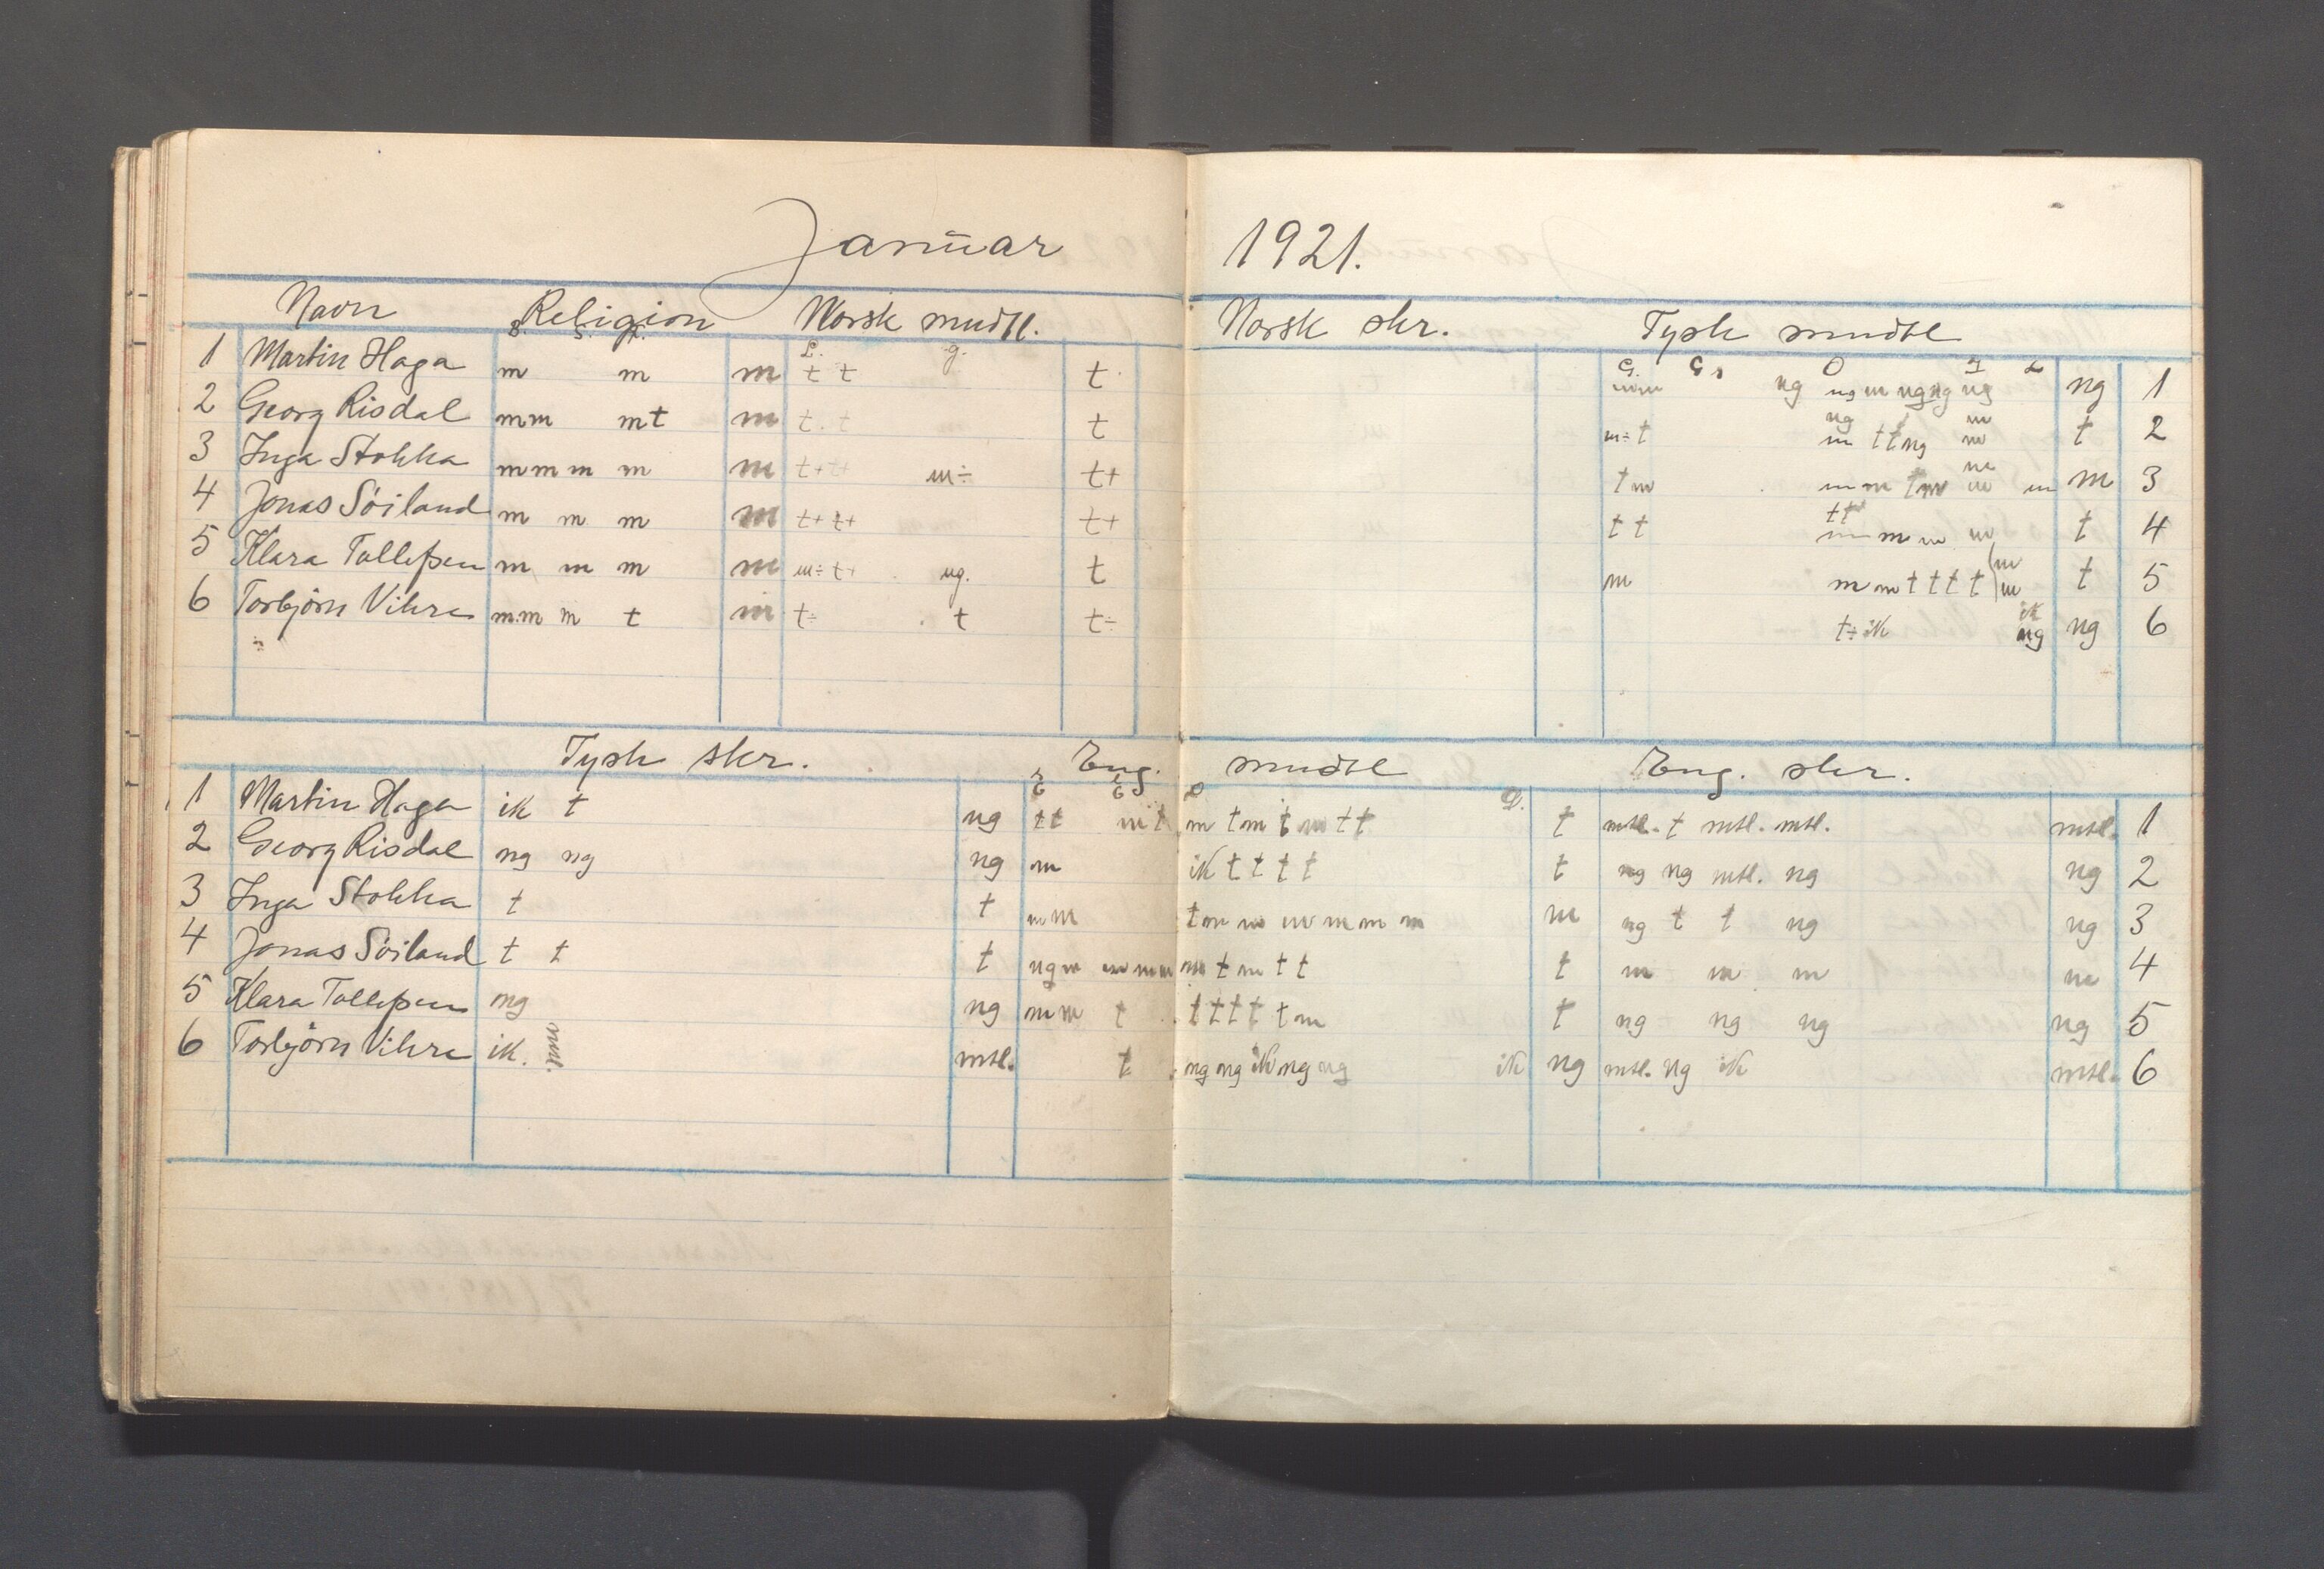 Januar 1921.
Navn Religion Norsk mudtl. Norsk skr. Tysk mudtl
L. g. G. Gr O L
1 Martin Haga m m m t t t mm ng ng m ng ng ng ng 1
2 Georg Risdal mm mt m t t t m÷ t ng m t t ng m m t 2
3 Inga Stokka m m m m m t+ t+ m÷ t+ t m m m t m m m m m 3
4 Jonas Söiland m m m m t+ t+ t+ t t t t m m m m t 4
5 Klara Tollefsen m m m m m÷ t+ ng. t m m m t t t t m m t 5
6 Torbjörn Vihre m.m m t m t÷ t t÷ t÷ ik ik ng ng 6
Tysk skr. Eng. mudtl Eng. skr.
1 Martin Haga ik t ng t t m t m t m t m t t t mtl. t mtl. mtl. mtl. 1
2 Georg Risdal ng ng ng m ik t t t t t ng ng mtl. ng ng 2
3 Inga Stokka t t m m t m m m m m m m ng t t ng ng 3
4 Jonas Söiland t t t ng m m m m m t m t t t m m m m 4
5 Klara Tollefsen mg ng m m t t t t t t m t ng ng ng ng 5
6 Torbjörn Vihre ik. mtl. t ng ng ik ng ng ik ng mtl. ng ik mtl. 6